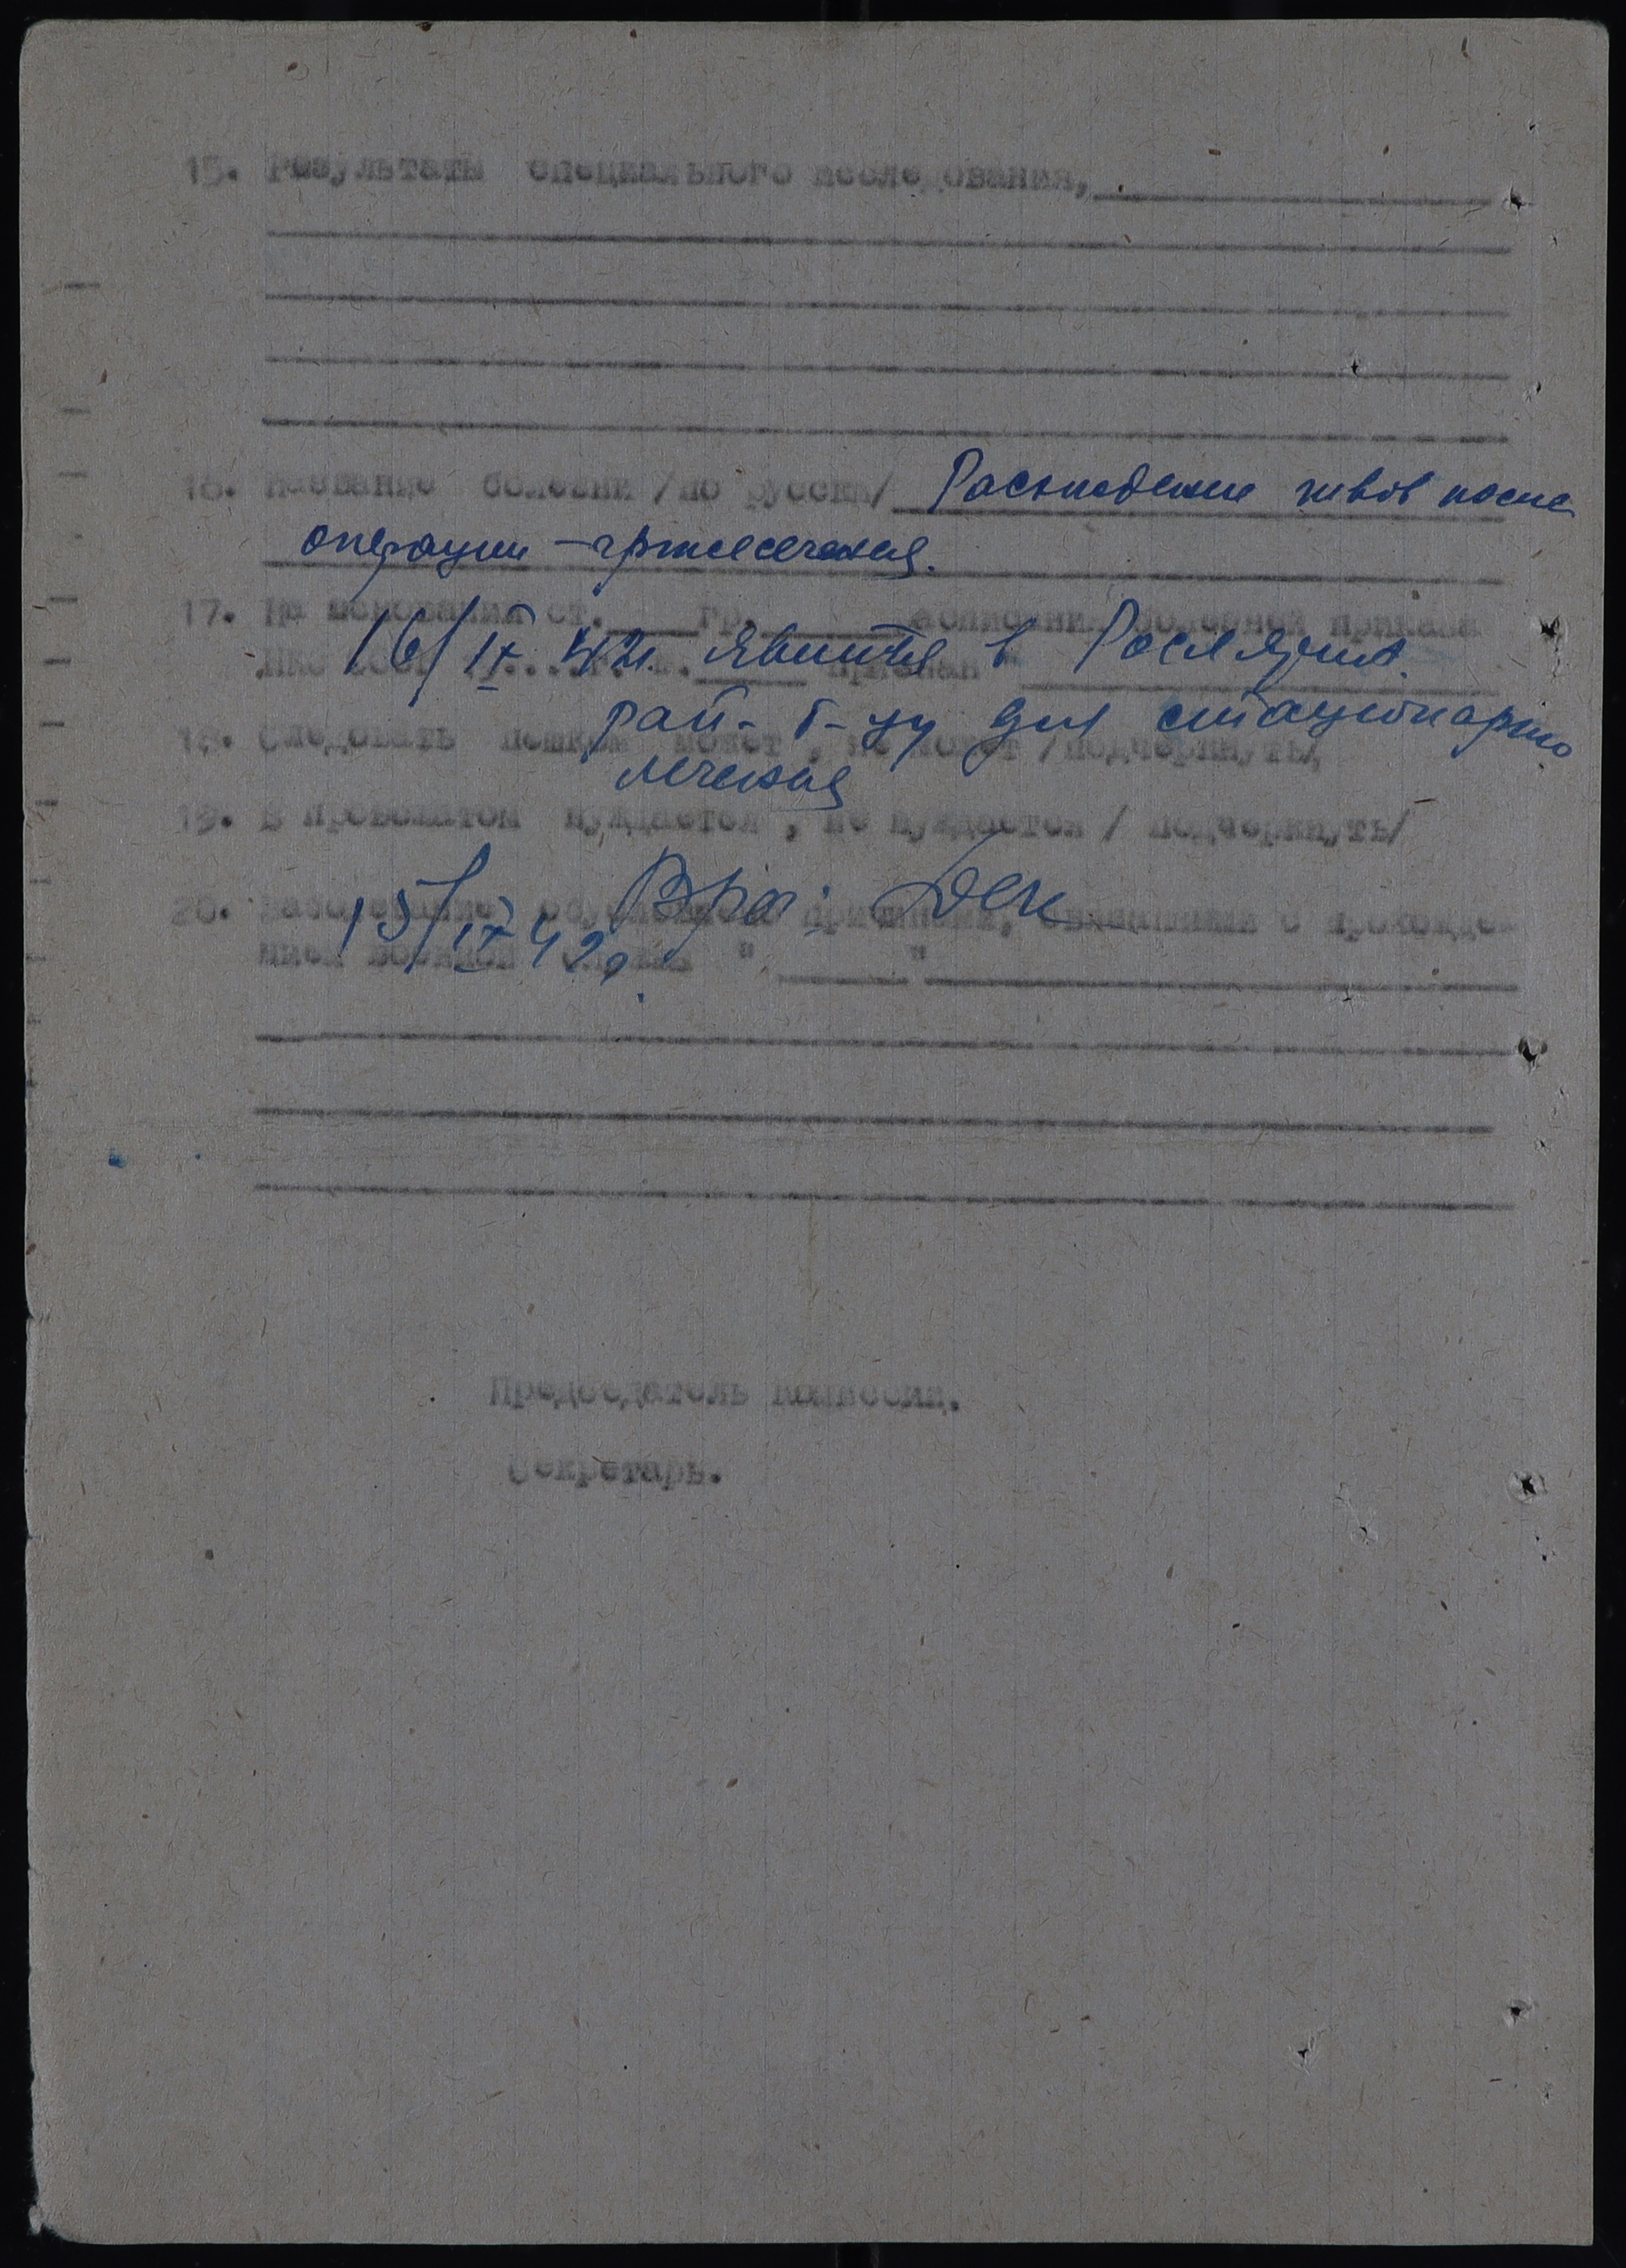 15. Результаты специального исследования,
16. Название болезни /по русски/ Расхождение швов после
операции – грыжесечения.
17. На основании ст. гр. расписания болезней приказа
16/IX 42г. явится в Рослятин.
НКО СССР признан
рай- б-цу для стационарно
18. Следовать пешком может, не может /подчеркнуть/,
лечения
19. В провожатом нуждается, не нуждается / подчеркнуть/
15/IX 42г. Врач
20. Заболевание обусловлено причинами, связанными с прохожде-
нием военной службы " "
Председатель комиссии.
Секретарь.